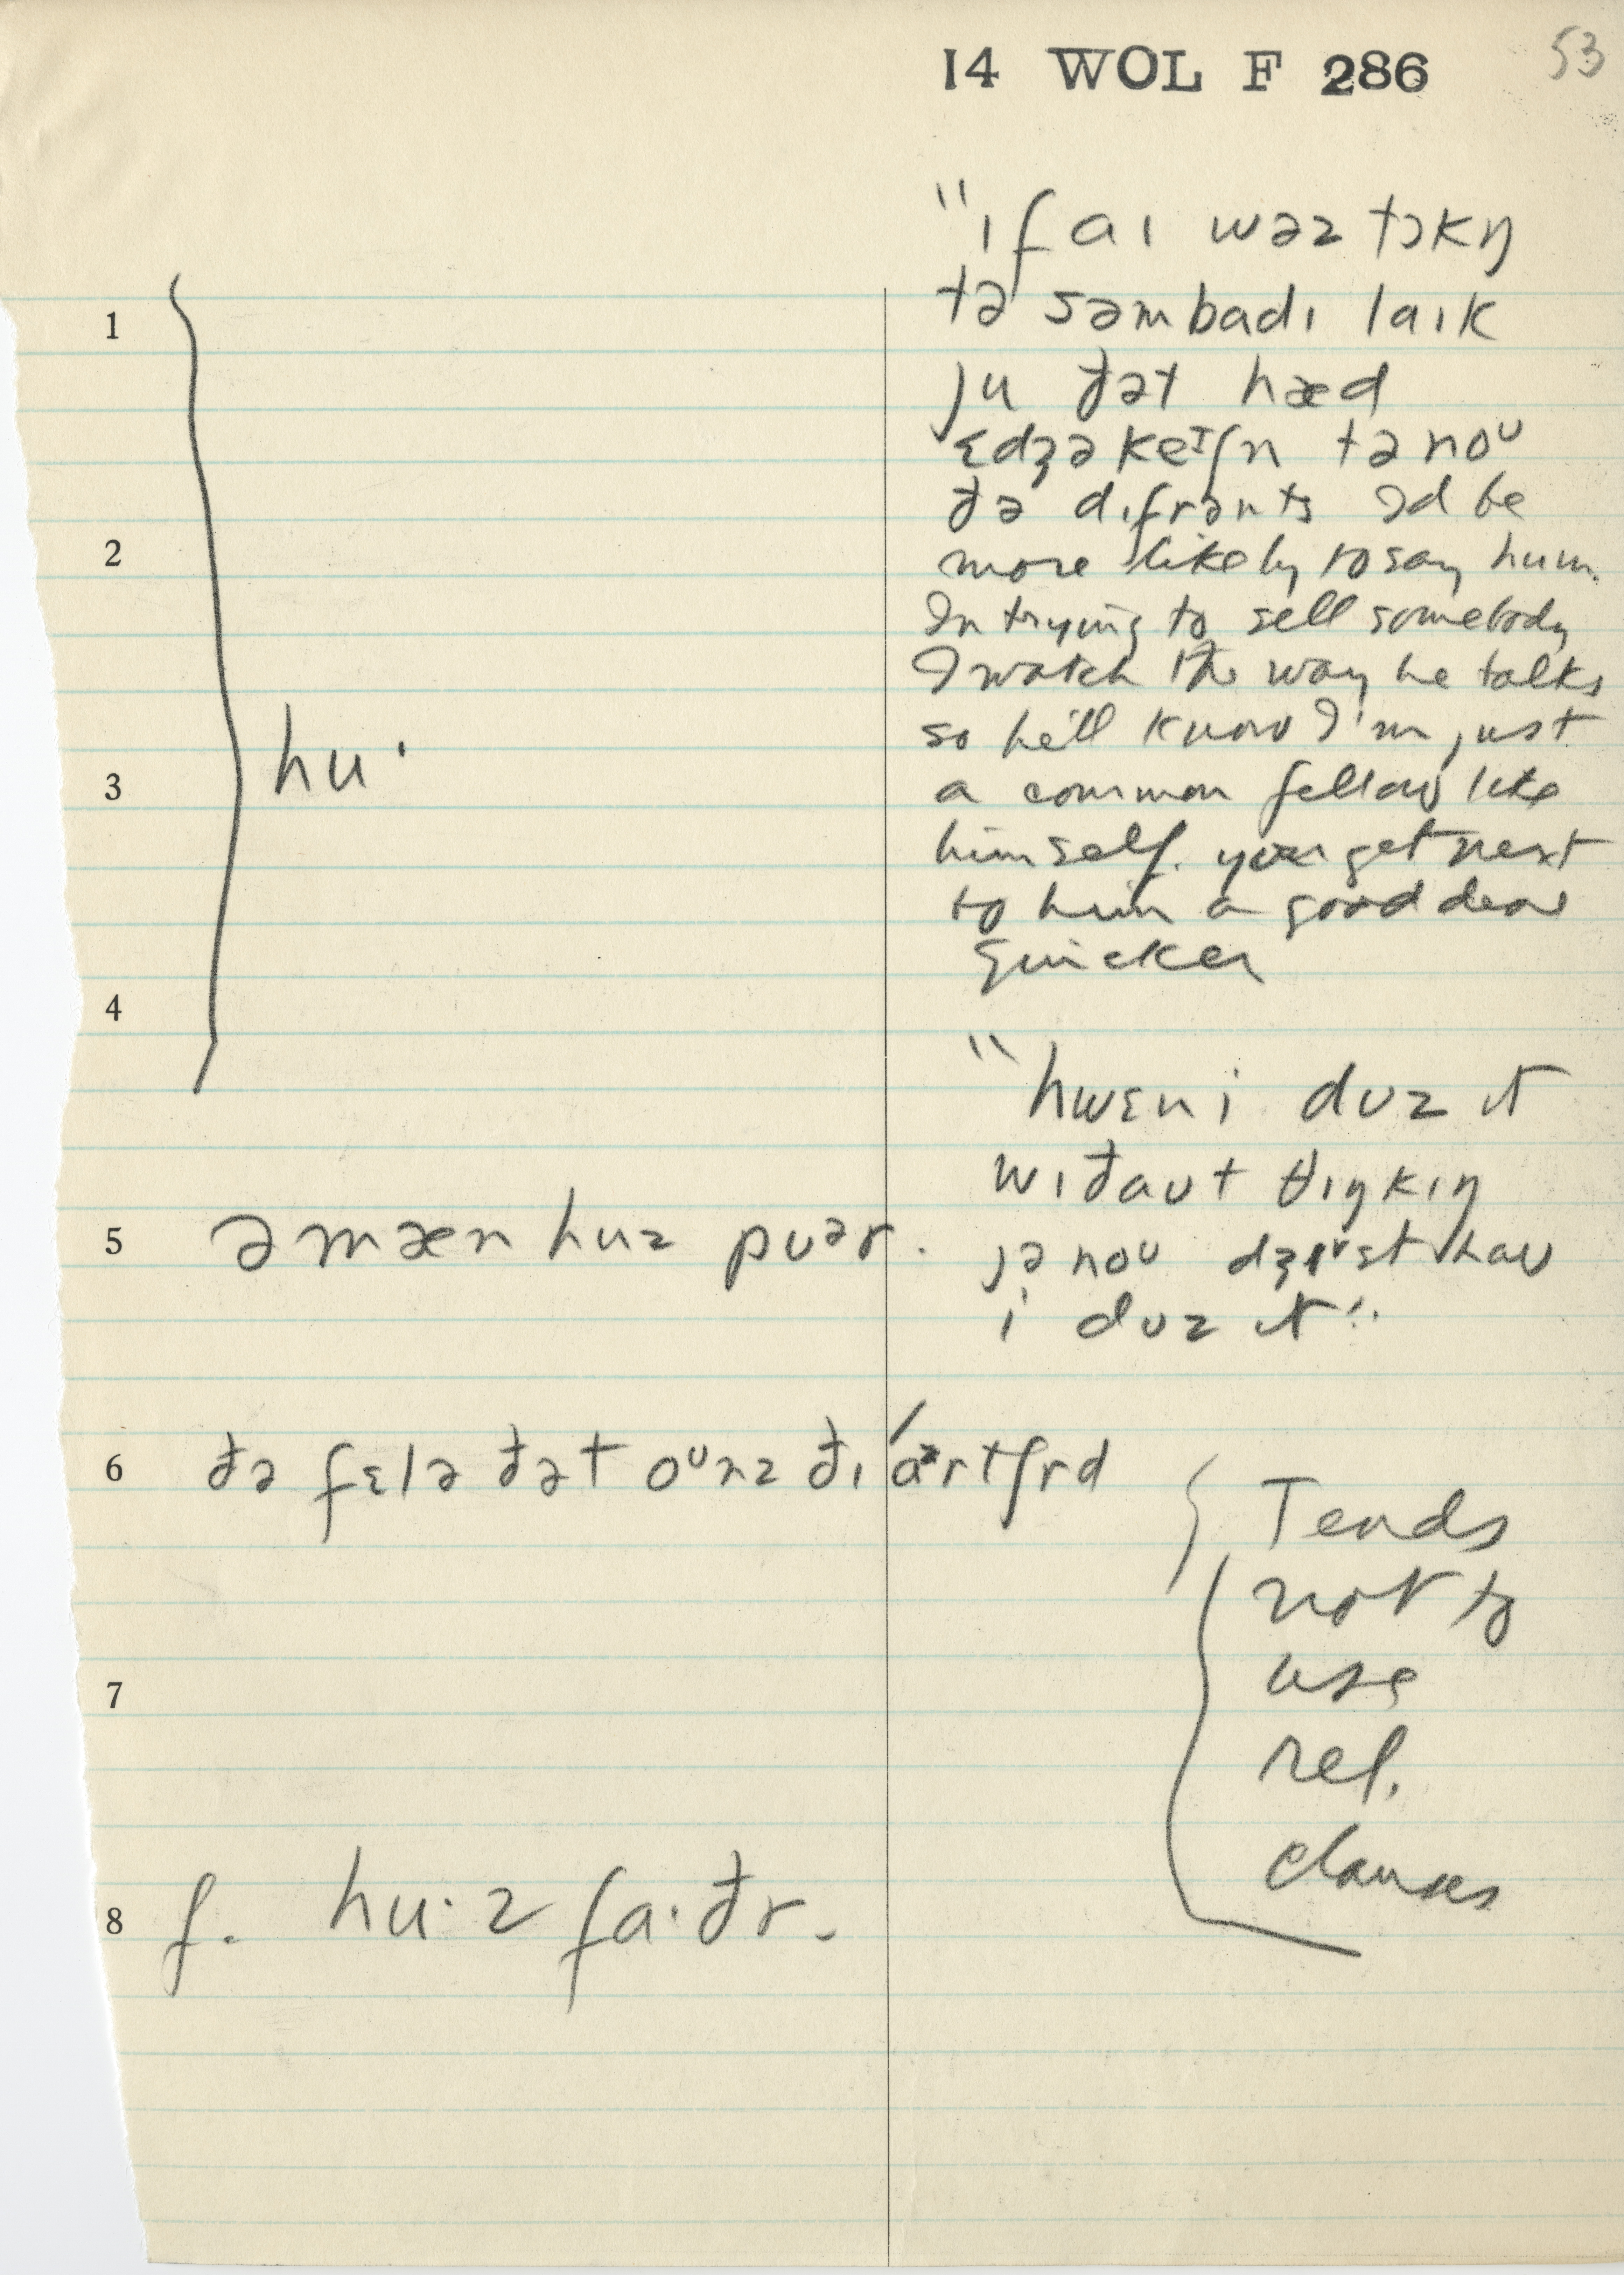 14 WOL F 286 53
"ɪf aɪ wəz tɔkŋ
tə səmbadɪ laɪk
ju ðət hæd
ɛdʒəkeᶦʃn tə noᶷ
ðə dɪfrənts I'd be
more likely to say hum.
In trying to sell somebody
I watch the way he talks
so he'll know I'm just
a common fellow like
himself. you get next
to him a good deal
quicker
1
2
3 hu·
4
"hwɛn i dʊz ɪt
wɪðaʊt θɪŋkɪŋ
jə noᶷ dʒɪst haʊ
i dʊz ɪt".
5 ə mæn huz pʊər.
6 ðə fɛlə ðət oᶷnz ðɪ ártʃrd
Tends
not to
use
rel.
clauses
7
8 f. hu·z fa·ðr.